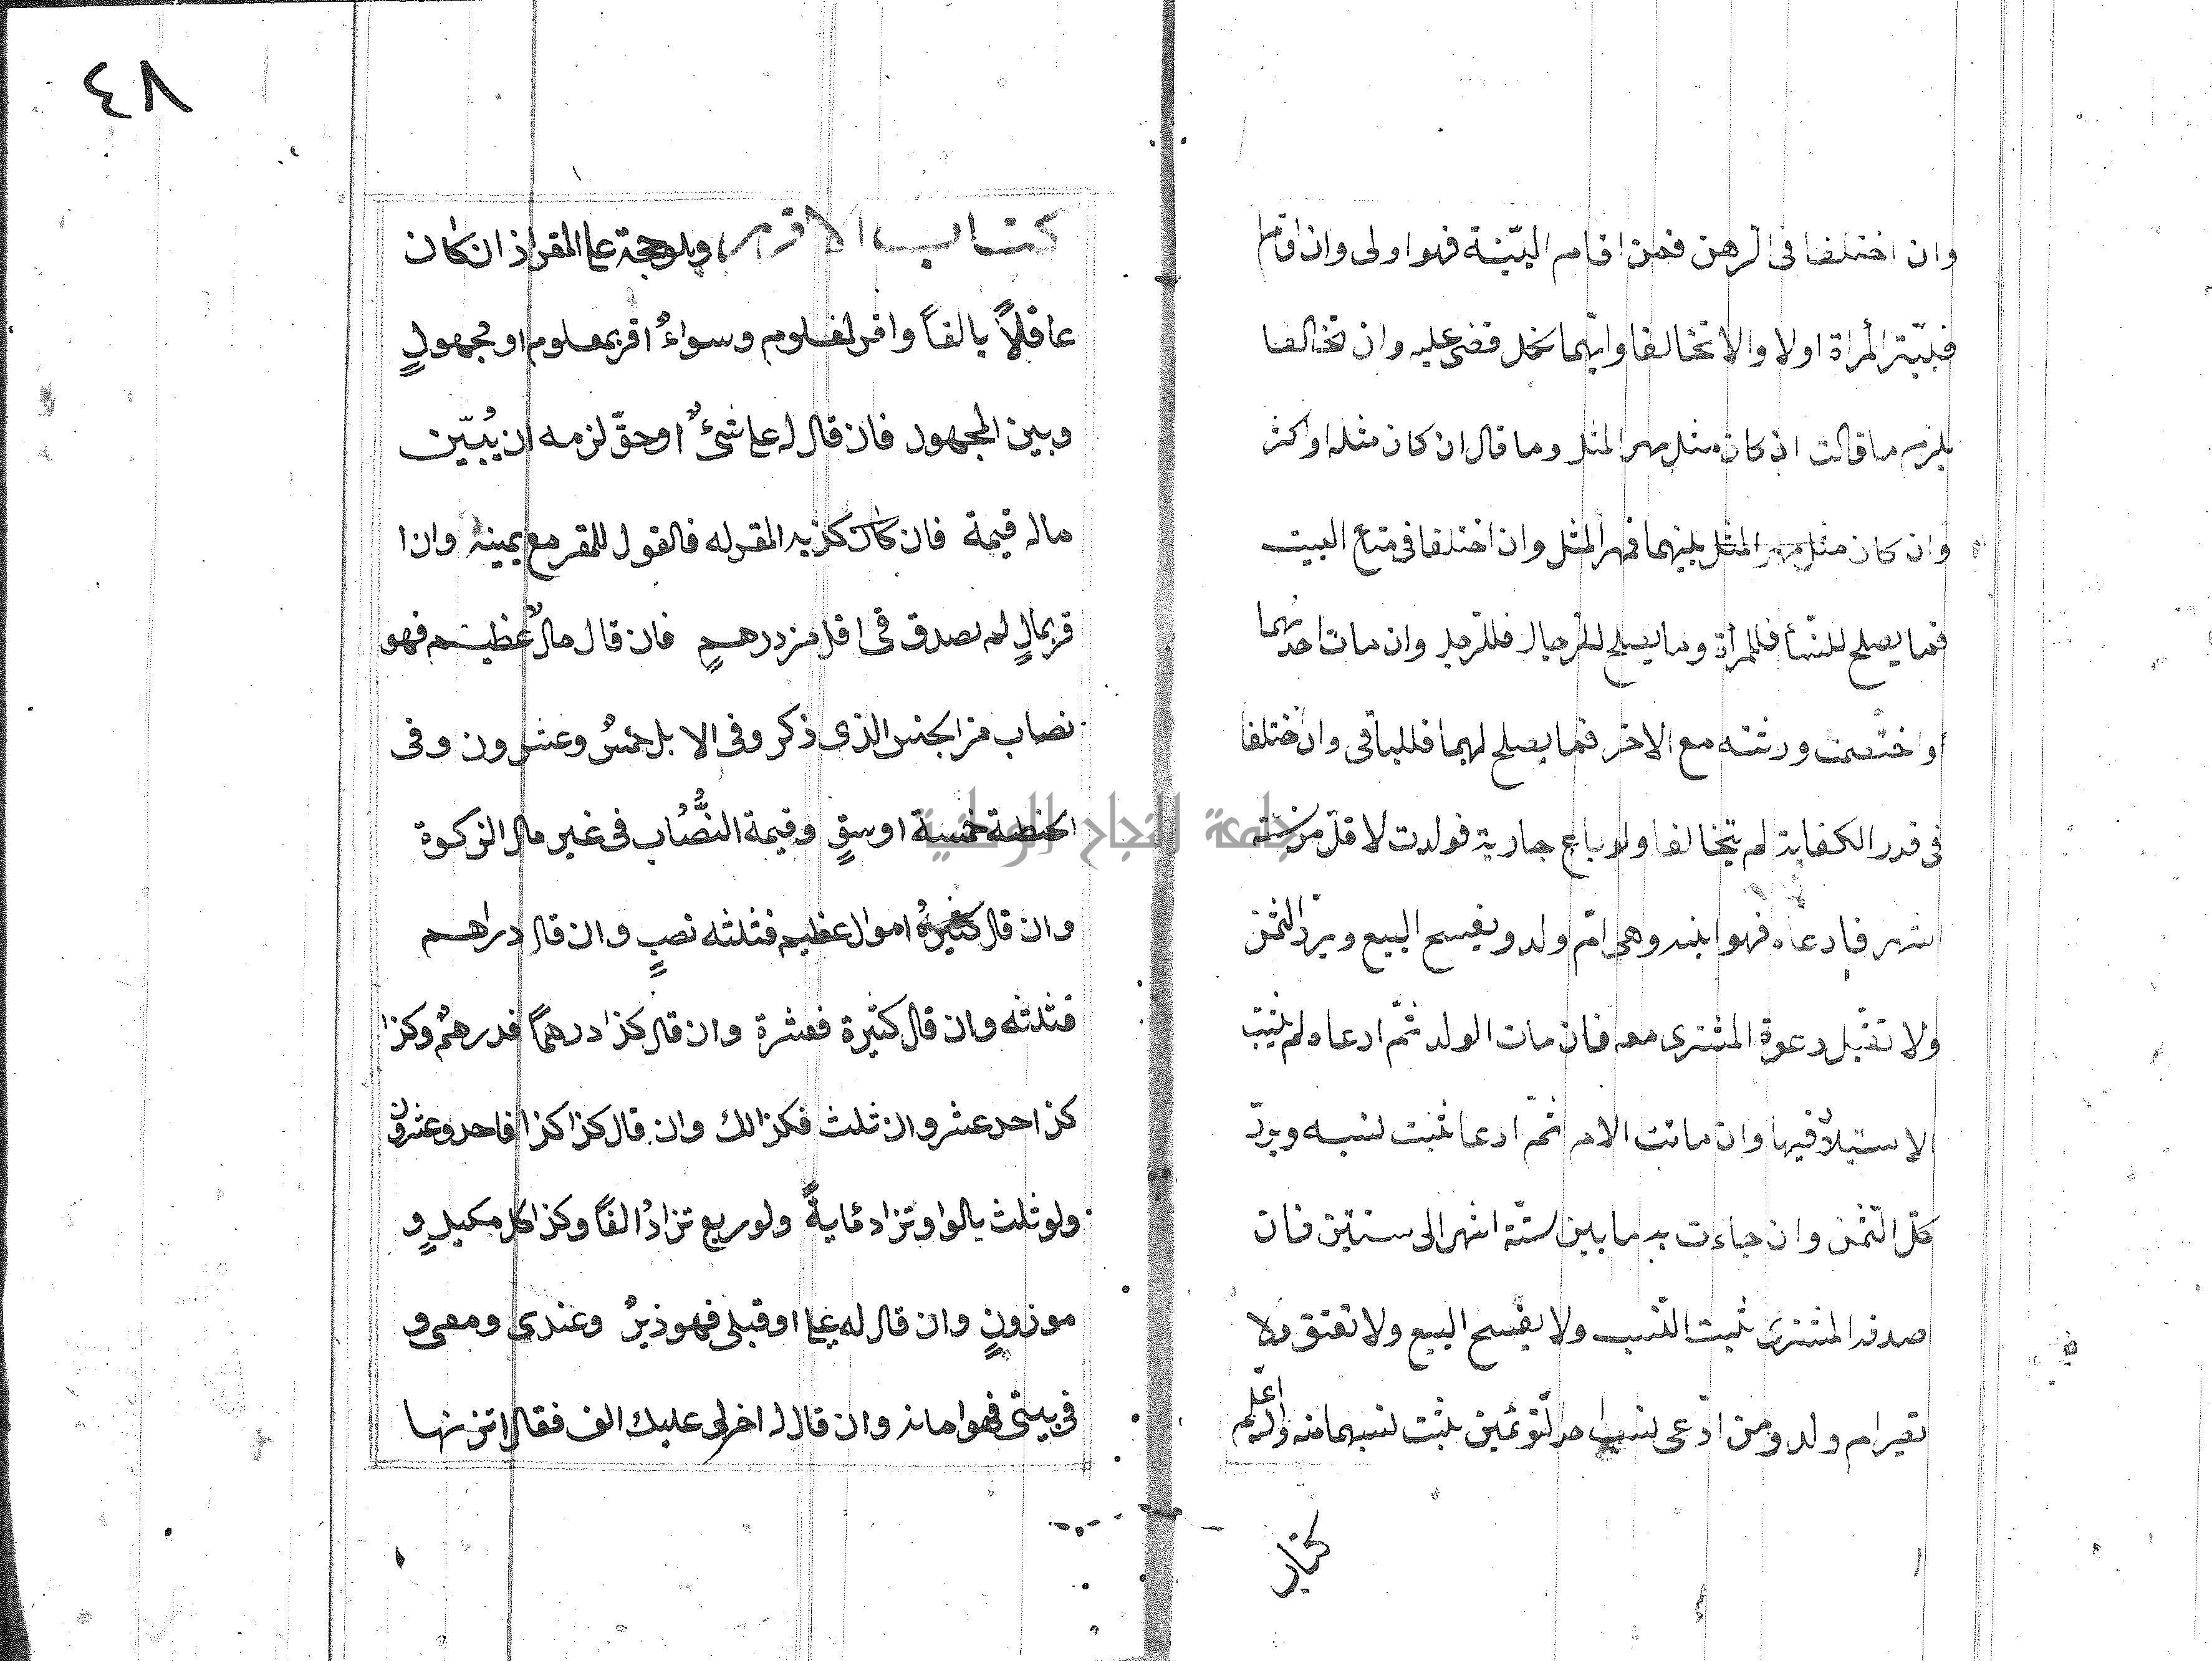 وان اختلفا فى الرهن فمن اقام البيّنة فهو اولى وان اقام
فبيّنة المرأة اولا والا تخالفا وايّهما نكل قضى عليه وان تخالفا
يلزم ما قالت ان كان مثل مهر المثل وما قال ان كان مثله او اكثر
وان كان مثل مهر المثل بينهما فمهر المثل وان اختلفا فى متع البيت
فما يصلح للنسأ فللمرأة وما يصلح للرجال فللرجل وان مات احدهما
واختصمت ورثته مع الاخر فما يصلح لهما فللباقى وان ختلفا
فى قدر الكفاية لم يتخالفا ولو باع جارية فولدت لاقل من ستة
اشهر فادعاه فهو ابنه وهى امّ ولد ويفسح البيع ويردّ الثمن
ولا تقبل دعوة المشترى معه فان مات الولد ثمّ ادعاه لم يثبت
الاستيلاد فيها وان ماتت الام ثمّ ادعا ثبت نسبه ويردّ
كلّ الثمن وان جاءت به ما بين ستّة اشهر الى سنتين فان
صدقه المشترى ثبت النسب ولا يفسح البيع ولا تعتق ولا
تصير ام ولد ومن ادّعى نسب احد التوئمين يثبت نسبهما منه والله اعلم
كتاب
٨٤
كتاب الاقرر وهو حجة على المقر اذ ان كان
عاقلاً بالغاً واقر لمعلوم وسواءٌ اقر بمعلوم او مجهولٍ
وبين المجهول فان قال له على شئٌ او حقّ لزمه ان يُبيّن
ماله قيمة فان كان كذبه المقر له فالقول للمقر مع يمينه وان ا
قر بمالٍ لم يصدق فى اقل من درهمٍ فان قال مالٌ عظيم فهو
نصاب من الجنس الذى ذكر وفى الابل خمسٌ وعشرون وفى
الحنطة خمسة اوسقٍ وقيمة النصاب فى غير مال الزكوة
وان قال كثيرة اموال عظيم فثلثه نصبٍ وان قال دراهم
فثلثه وان قال كثيرة فعشرة وان قال كذا درهماً فدرهمٌ وكذا
كذا احد عشر وان ثلث فكذالك وان قال كذا كذا فاحد وعشرون
ولو ثلث بالواو تزاد مايةً ولو ربع تزادُ الفاً وكذا كل مكيلٍ و
موزونٍ وان قال له على او قبلى فهو دينٌ وعندى ومعى و
فى بيتى فهو امانه وان قال له اخر لى عليك الف فقال اتزنها
جامعة النجاح الوطنية